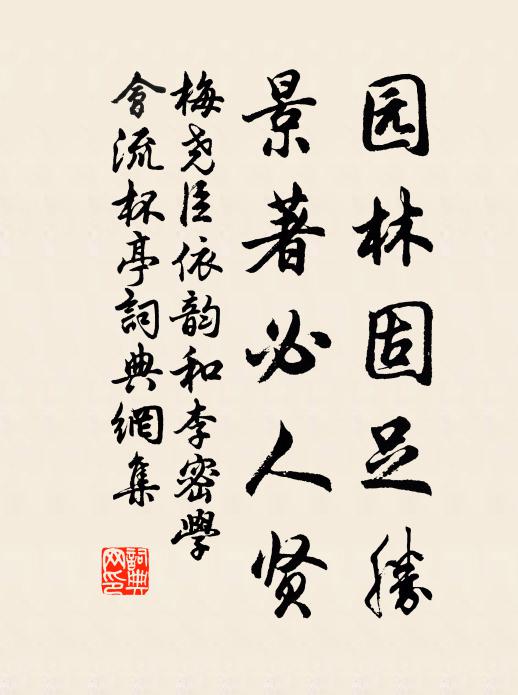 园林固足勝
景著必人贤
梅尧臣依韵和李密學
會流杯亭詞典網集
詞典网印